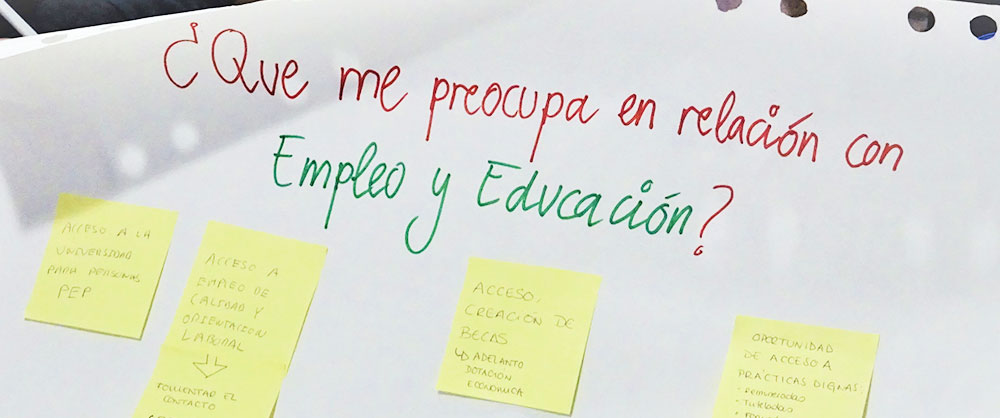 ¿Que me preocupa en relación con
Empleo y Educación?
ACCESO A LA
UNIVERSIDAD
PARA PERSONAS
PEP
ACCESO A
EMPLEO DE
CALIDAD Y
ORIENTACION
LABORAL
FOMENTAR EL
CONTACTO
ACCESO,
CREACIÓN DE
BECAS
↳ ADELANTO
DOTACIÓN
ECONOMICA
OPORTUNIDAD
DE ACCESO A
PRÁCTICAS DIGNAS:
- Remuneradas
- Tuteladas